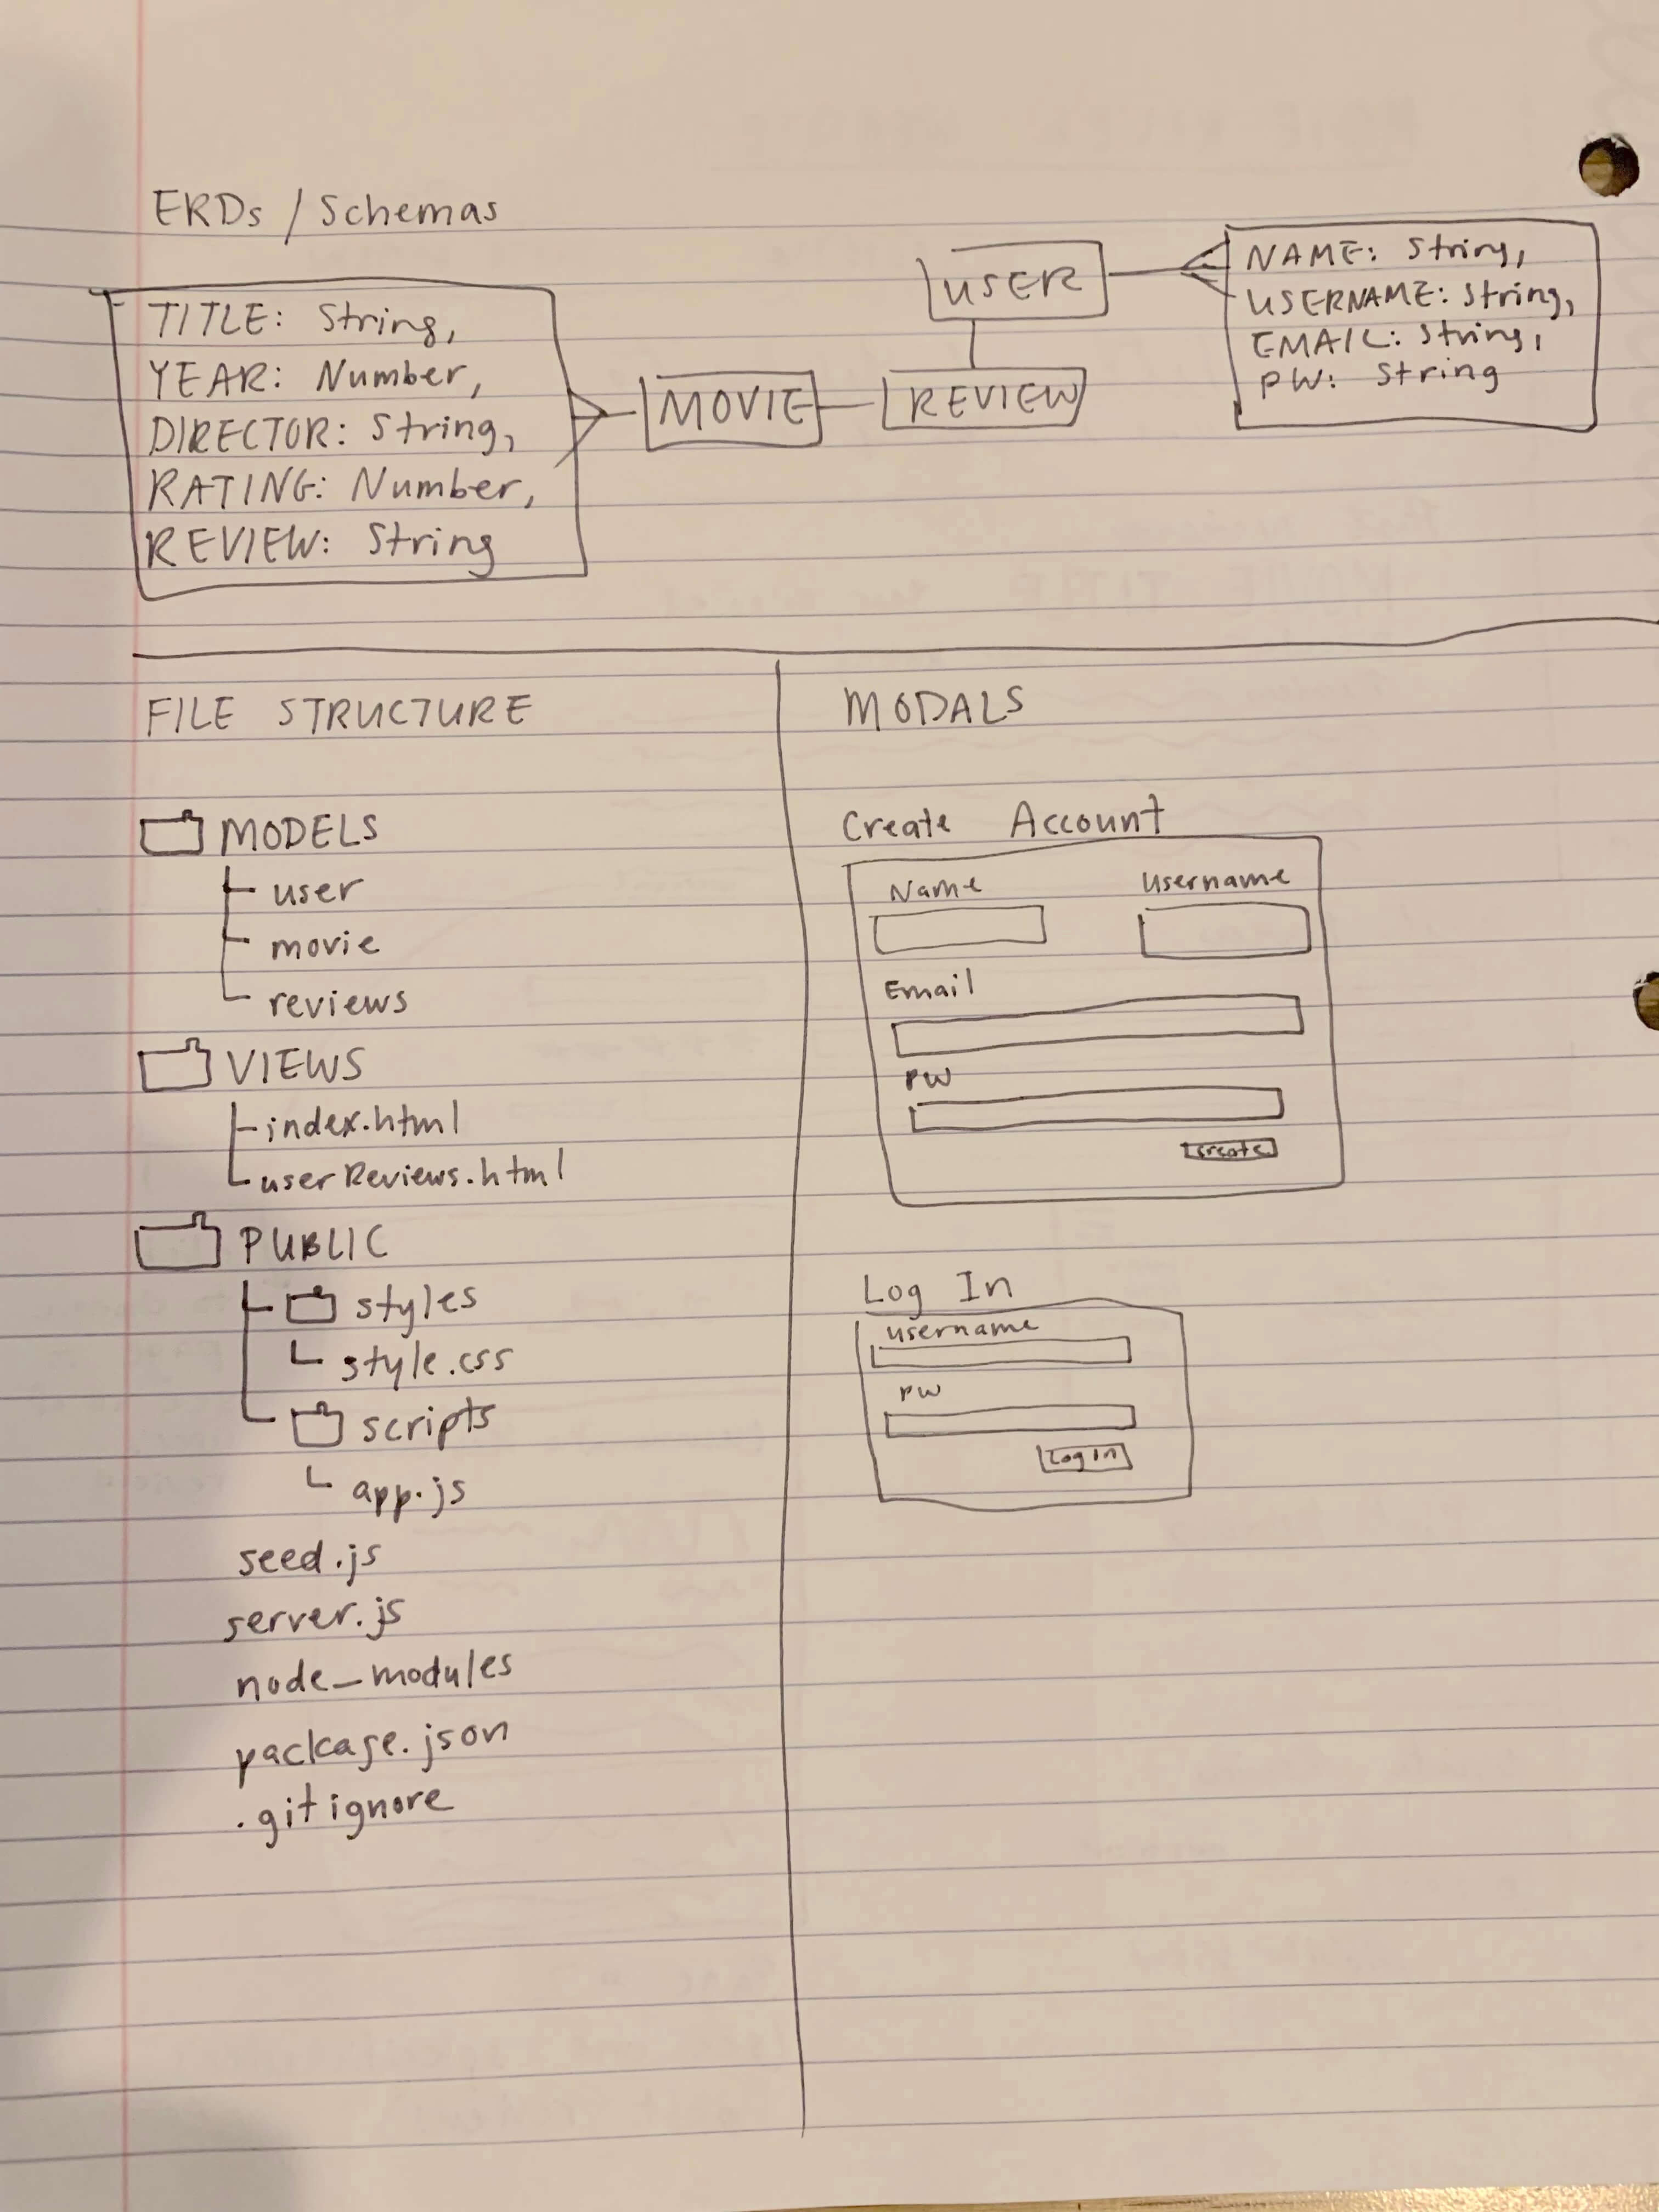 ERDs / Schemas
TITLE: String,
YEAR: Number,
DIRECTOR: String,
RATING: Number,
REVIEW: String
MOVIE
REVIEW
USER
NAME: String,
USERNAME: String,
EMAIL: String,
PW: String
FILE STRUCTURE
MODELS
user
movie
reviews
VIEWS
index.html
userReviews.html
PUBLIC
styles
style.css
scripts
app.js
seed.js
server.js
node_modules
package.json
.gitignore
MODALS
Create Account
Name
Username
Email
PW
create
Log In
username
PW
Log in